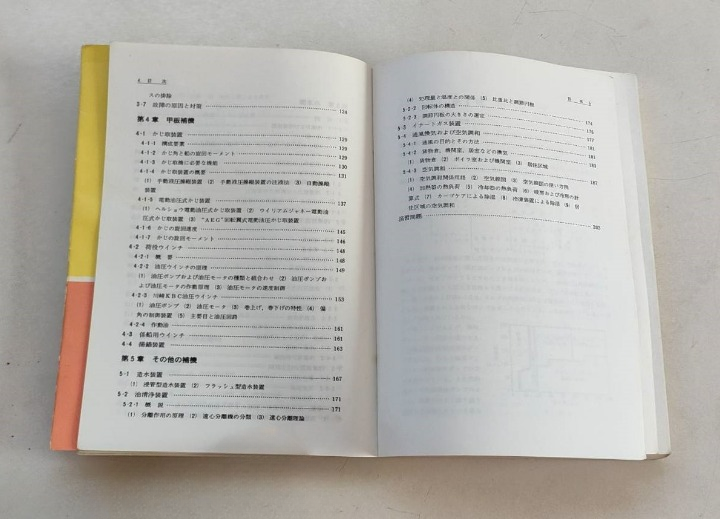 4 目 次
スの排除
3-7 故障の原因と対策 124
第4章 甲板補機
4-1 かじ取装置 129
4-1-1 構成要素 129
4-1-2 かじ角と船の旋回モーメント 129
4-1-3 かじ取機に必要な機能 130
4-1-4 かじ取装置の概要 131
(1) 手動液圧操縦装置 (2) 手動液圧操縦装置の注液法 (3) 自動操縦
装置
4-1-5 電動油圧式かじ装置 137
(1) ヘルショウ電動油圧式かじ取装置 (2) ウイリアムジャネー電動油
圧式かじ取装置 (3) “AEG”回転翼式電動液圧かじ取装置
4-1-6 かじの旋回速度 145
4-1-7 かじの旋回モーメント 146
4-2 荷役ウインチ 148
4-2-1 概 要 148
4-2-2 油圧ウインチの原理 149
(1) 油圧ポンプおよび油圧モータの種類と組合わせ (2) 油圧ポンプお
よび油圧モータの作動原理 (3) 油圧モータの速度制御
4-2-3 川崎KBC油圧ウインチ 153
(1) 油圧ポンプ (2) 油圧モータ (3) 巻上げ、巻下げの特性 (4) 偏
角の制御装置 (5) 主要目と油圧回路
4-2-4 作動油 161
4-3 係船用ウインチ 161
4-4 揚錨装置 163
第5章 その他の補機
5-1 造水装置 167
(1) 浸管型造水装置 (2) フラッシュ型造水装置
5-2 油清浄装置 171
5-2-1 概 説 171
(1) 分離作用の原理 (2) 遠心分離機の分類 (3) 遠心分離理論
目 次 5
(4) 処理量と温度との関係 (5) 比重比と調節円板
5-2-2 回転体の構造 174
5-2-3 調節円板の大きさの選定 176
5-3 イナートガス装置 177
5-4 通風換気および空気調和 181
5-4-1 通風の目的とその方法 181
5-4-2 貨物倉、機関室、居室などの換気 181
(1) 貨物倉 (2) ボイラ室および機関室 (3) 居住区域
5-4-3 空気調和 187
(1) 空気調和関係用語 (2) 空気線図 (3) 空気線図の使い方例
(4) 加熱器の熱負荷 (5) 冷却器の熱負荷 (6) 暖房および冷房の計
算式 (7) カーゴケアによる除湿 (8) 冷凍装置による除湿 (9) 居
住区域の空気調和
演習問題 202